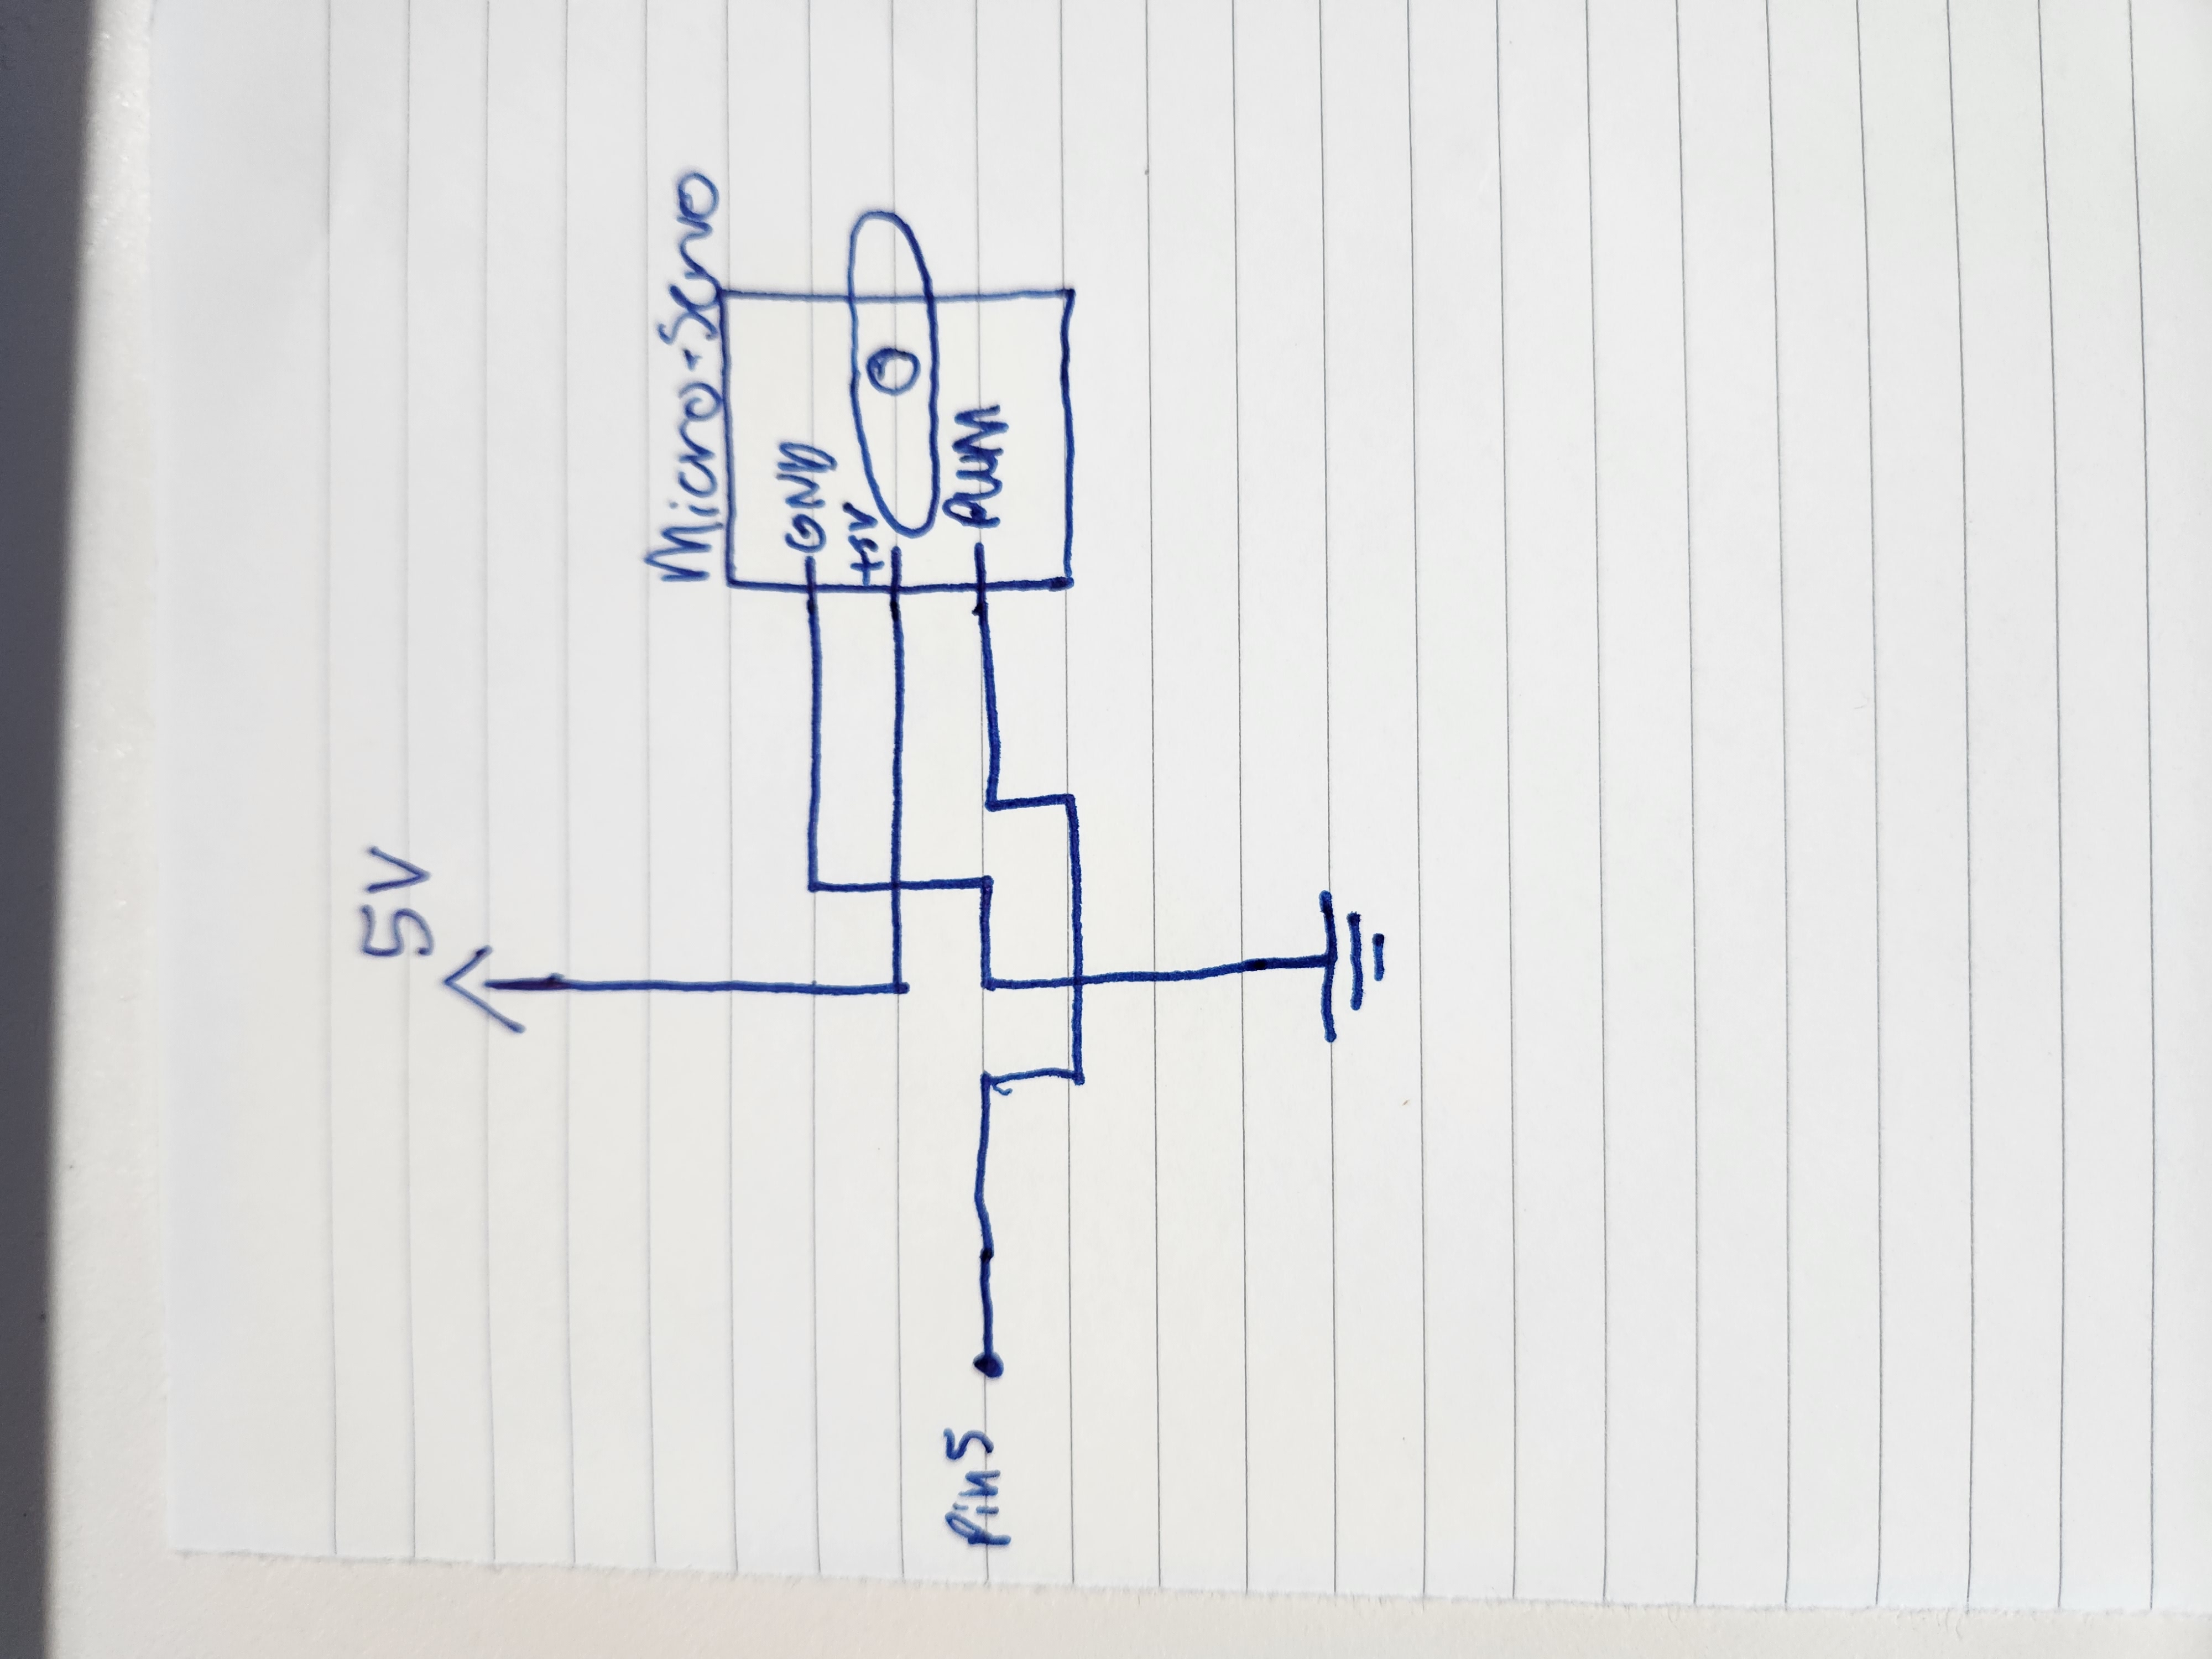 5V
Micro-Servo
GND
+5V
Pin5
PWM